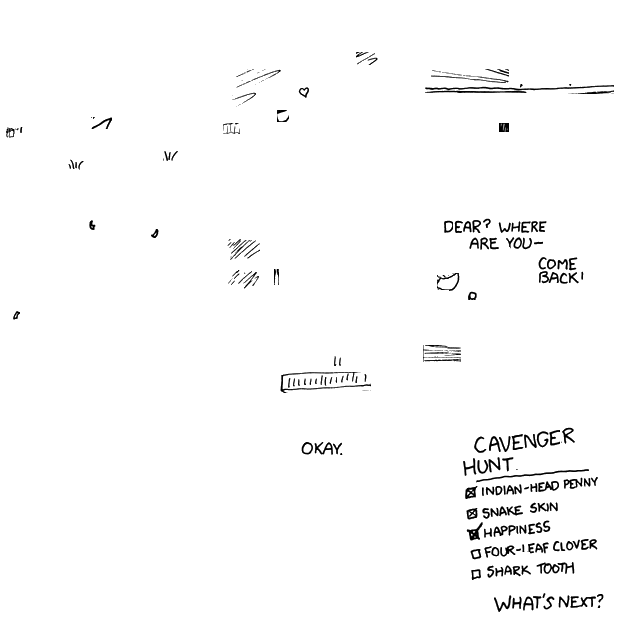 DEAR? WHERE
ARE YOU—
COME
BACK!
OKAY.
CAVENGER
HUNT
INDIAN-HEAD PENNY
SNAKE SKIN
HAPPINESS
FOUR-LEAF CLOVER
SHARK TOOTH
WHAT'S NEXT?